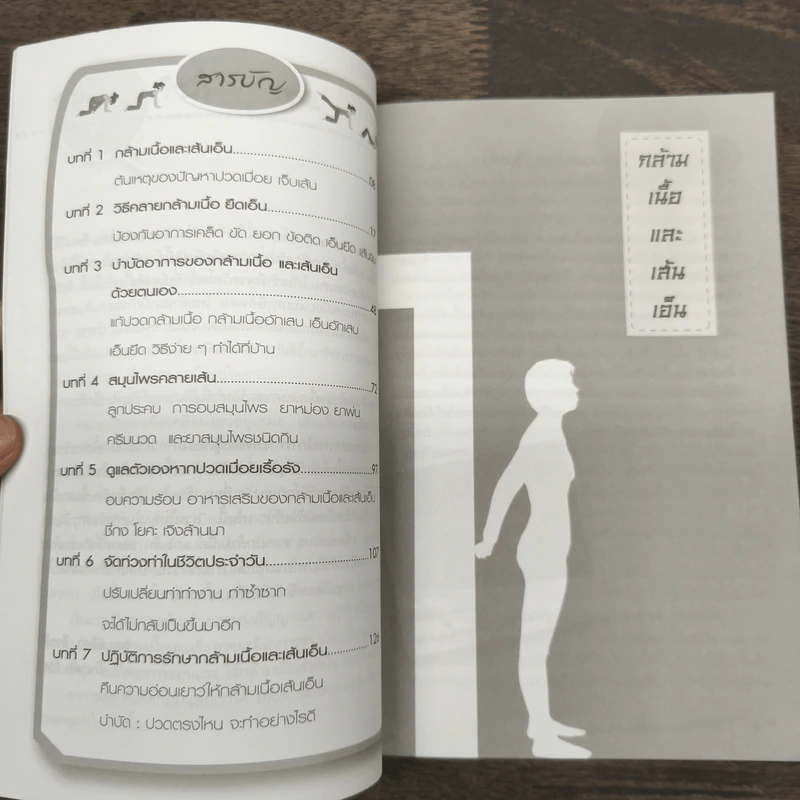 สารบัญ
บทที่ 1 กล้ามเนื้อและเส้นเอ็น....................08
ต้นเหตุของปัญหาปวดเมื่อย เจ็บเส้น
บทที่ 2 วิธีคลายกล้ามเนื้อ ยืดเอ็น....................17
ป้องกันอาการเคล็ด ขัด ยอก ข้อติด เอ็นยึด
บทที่ 3 บำบัดอาการของกล้ามเนื้อ และเส้นเอ็น
ด้วยตนเอง....................48
แก้ปวดกล้ามเนื้อ กล้ามเนื้ออักเสบ เอ็นอักเสบ
เอ็นยึด วิธีง่าย ๆ ทำได้ที่บ้าน
บทที่ 4 สมุนไพรคลายเส้น....................72
ลูกประคบ การอบสมุนไพร ยาหม่อง ยาพ่น
ครีมนวด และยาสมุนไพรชนิดกิน
บทที่ 5 ดูแลตัวเองหากปวดเมื่อยเรื้อรัง....................97
อบความร้อน อาหารเสริมของกล้ามเนื้อและเส้นเอ็น
ชี่กง โยคะ เจิงล้านนา
บทที่ 6 จัดท่วงท่าในชีวิตประจำวัน....................107
ปรับเปลี่ยนท่าทำงาน ท่าซ้ำซาก
จะได้ไม่กลับเป็นขึ้นมาอีก
บทที่ 7 ปฏิบัติการรักษากล้ามเนื้อและเส้นเอ็น....................126
คืนความอ่อนเยาว์ให้กล้ามเนื้อเส้นเอ็น
บำบัด : ปวดตรงไหน จะทำอย่างไรดี
กล้าม
เนื้อ
และ
เส้น
เอ็น